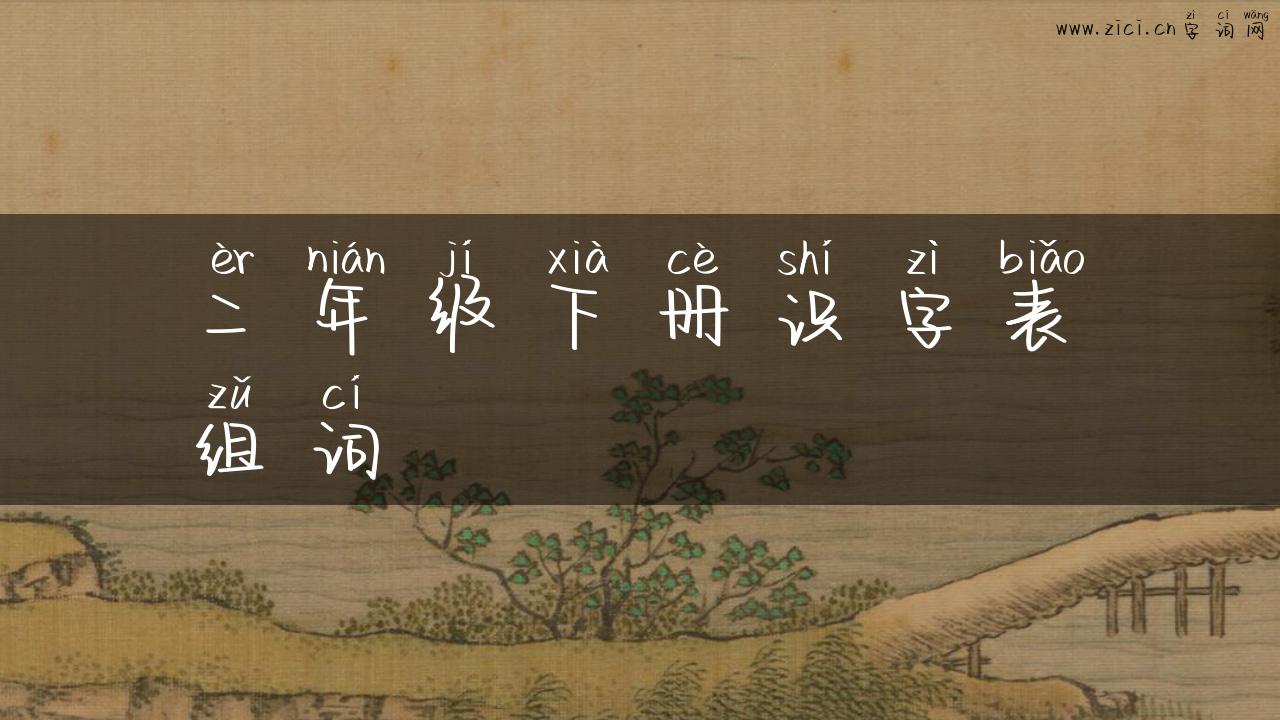 zì cí wǎng
www.zici.cn 字 词 网
èr nián jí xià cè shí zì biǎo
二 年 级 下 册 识 字 表
zǔ cí
组 词